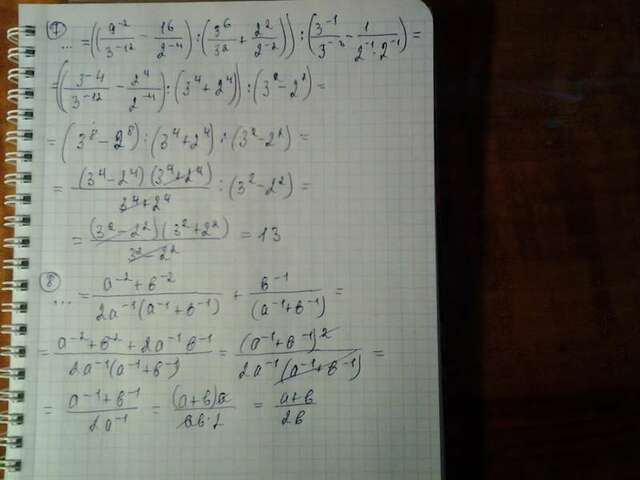 7
... = ((9^-2/3^-12 - 16/2^-4) : (3^6/3^2 + 2^2/2^-2)) : (3^-1/3^-3 - 1/2^-1·2^-1) =
= ((3^-4/3^-12 - 2^4/2^-4) : (3^4 + 2^4)) : (3^2 - 2^2) =
= (3^8 - 2^8) : (3^4 + 2^4) : (3^2 - 2^2) =
= (3^4 - 2^4)(3^4 + 2^4)/3^4 + 2^4 : (3^2 - 2^2) =
= (3^2 - 2^2)(3^2 + 2^2)/3^2 - 2^2 = 13
8
... = a^-2 + b^-2/2a^-1(a^-1 + b^-1) + b^-1/(a^-1 + b^-1) =
= a^-2 + b^-2 + 2a^-1 b^-1/2a^-1(a^-1 + b^-1) = (a^-1 + b^-1)^2/2a^-1(a^-1 + b^-1) =
= a^-1 + b^-1/2a^-1 = (a+b)a/ab·2 = a+b/2b